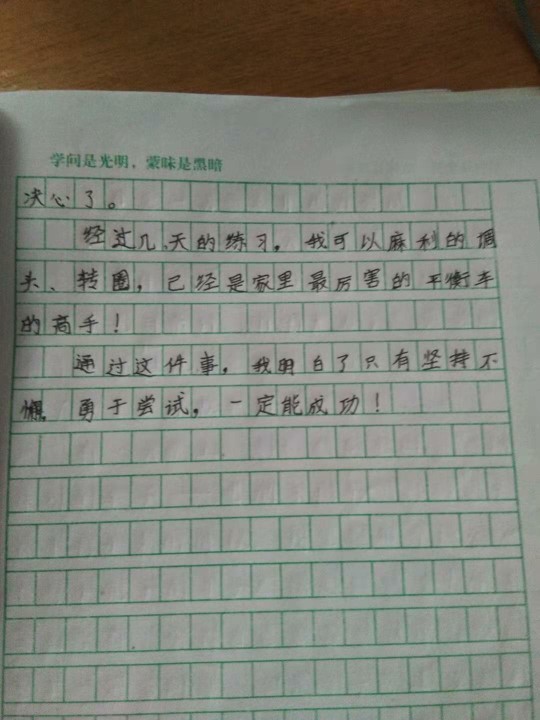 学问是光明，蒙昧是黑暗
决心了。
经过几天的练习，我可以麻利的调
头、转圈，已经是家里最厉害的平衡车
的高手！
通过这件事，我明白了只有坚持不
懈，勇于尝试，一定能成功！